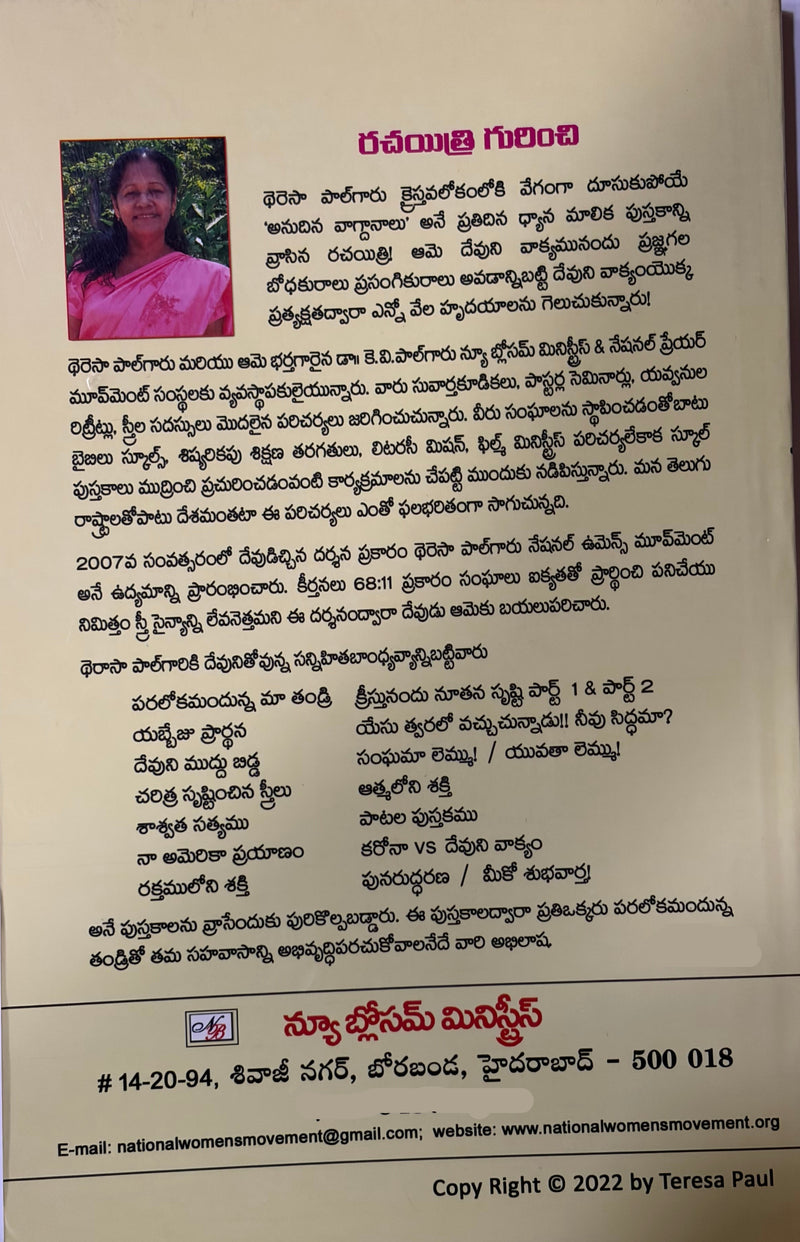 రచయిత్రి గురించి
థెరెసా పాల్‌గారు క్రైస్తవలోకంలోకి వేగంగా దూసుకుపోయే
'అనుదిన వాగ్దానాలు' అనే ప్రతిదిన ధ్యాన మాలిక పుస్తకాన్ని
వ్రాసిన రచయిత్రి! ఆమె దేవుని వాక్యమునందు ప్రజ్ఞగల
బోధకురాలు ప్రసంగికురాలు అవడాన్నిబట్టి దేవుని వాక్యంయొక్క
ప్రత్యక్షతద్వారా ఎన్నో వేల హృదయాలను గెలుచుకున్నారు!
థెరెసా పాల్‌గారు మరియు ఆమె భర్తగారైన డా॥ కె.వి.పాల్‌గారు న్యూ బ్లోసమ్ మినిస్ట్రీస్ & నేషనల్ ప్రేయర్
మూవ్‌మెంట్ సంస్థలకు వ్యవస్థాపకులైయున్నారు. వారు సువార్తకూడికలు, పాస్టర్ల సెమినార్లు, యవ్వనుల
రిట్రీట్లు, స్త్రీల సదస్సులు మొదలైన పరిచర్యలు జరిగించుచున్నారు. వీరు సంఘాలను స్థాపించడంతోబాటు
బైబిలు స్కూల్స్, శిష్యరికపు శిక్షణ తరగతులు, లిటరసీ మిషన్, ఫిల్మ్ మినిస్ట్రీస్ పరిచర్యలేకాక స్కూల్
పుస్తకాలు ముద్రించి ప్రచురించడంవంటి కార్యక్రమాలను చేపట్టి ముందుకు నడిపిస్తున్నారు. మన తెలుగు
రాష్ట్రాలతోపాటు దేశమంతటా ఈ పరిచర్యలు ఎంతో ఫలభరితంగా సాగుచున్నది.
2007వ సంవత్సరంలో దేవుడిచ్చిన దర్శన ప్రకారం థెరెసా పాల్‌గారు నేషనల్ ఉమెన్స్ మూవ్‌మెంట్
అనే ఉద్యమాన్ని ప్రారంభించారు. కీర్తనలు 68:11 ప్రకారం సంఘాలు ఐక్యతతో ప్రార్థించి పనిచేయు
నిమిత్తం స్త్రీ సైన్యాన్ని లేవనెత్తమని ఈ దర్శనంద్వారా దేవుడు ఆమెకు బయలుపరిచారు.
థెరాసా పాల్‌గారికి దేవునితోవున్న సన్నిహితబాంధవ్యాన్నిబట్టివారు
పరలోకమందున్న మా తండ్రి క్రీస్తునందు నూతన సృష్టి పార్ట్ 1 & పార్ట్ 2
యబ్బేజు ప్రార్థన యేసు త్వరలో వచ్చుచున్నాడు!! నీవు సిద్ధమా?
దేవుని ముద్దు బిడ్డ సంఘమా లెమ్ము! / యువతా లెమ్ము!
చరిత్ర సృష్టించిన స్త్రీలు ఆత్మలోని శక్తి
శాశ్వత సత్యము పాటల పుస్తకము
నా అమెరికా ప్రయాణం కరోనా vs దేవుని వాక్యం
రక్తములోని శక్తి పునరుద్ధరణ / మీకో శుభవార్త!
అనే పుస్తకాలను వ్రాసేందుకు పురికొల్పబడ్డారు. ఈ పుస్తకాలద్వారా ప్రతిఒక్కరు పరలోకమందున్న
తండ్రితో తమ సహవాసాన్ని అభివృద్ధిపరచుకోవాలనేదే వారి అభిలాష.
NB న్యూ బ్లోసమ్ మినిస్ట్రీస్
# 14-20-94, శివాజీ నగర్, బోరబండ, హైదరాబాద్ - 500 018
E-mail: nationalwomensmovement@gmail.com; website: www.nationalwomensmovement.org
Copy Right © 2022 by Teresa Paul